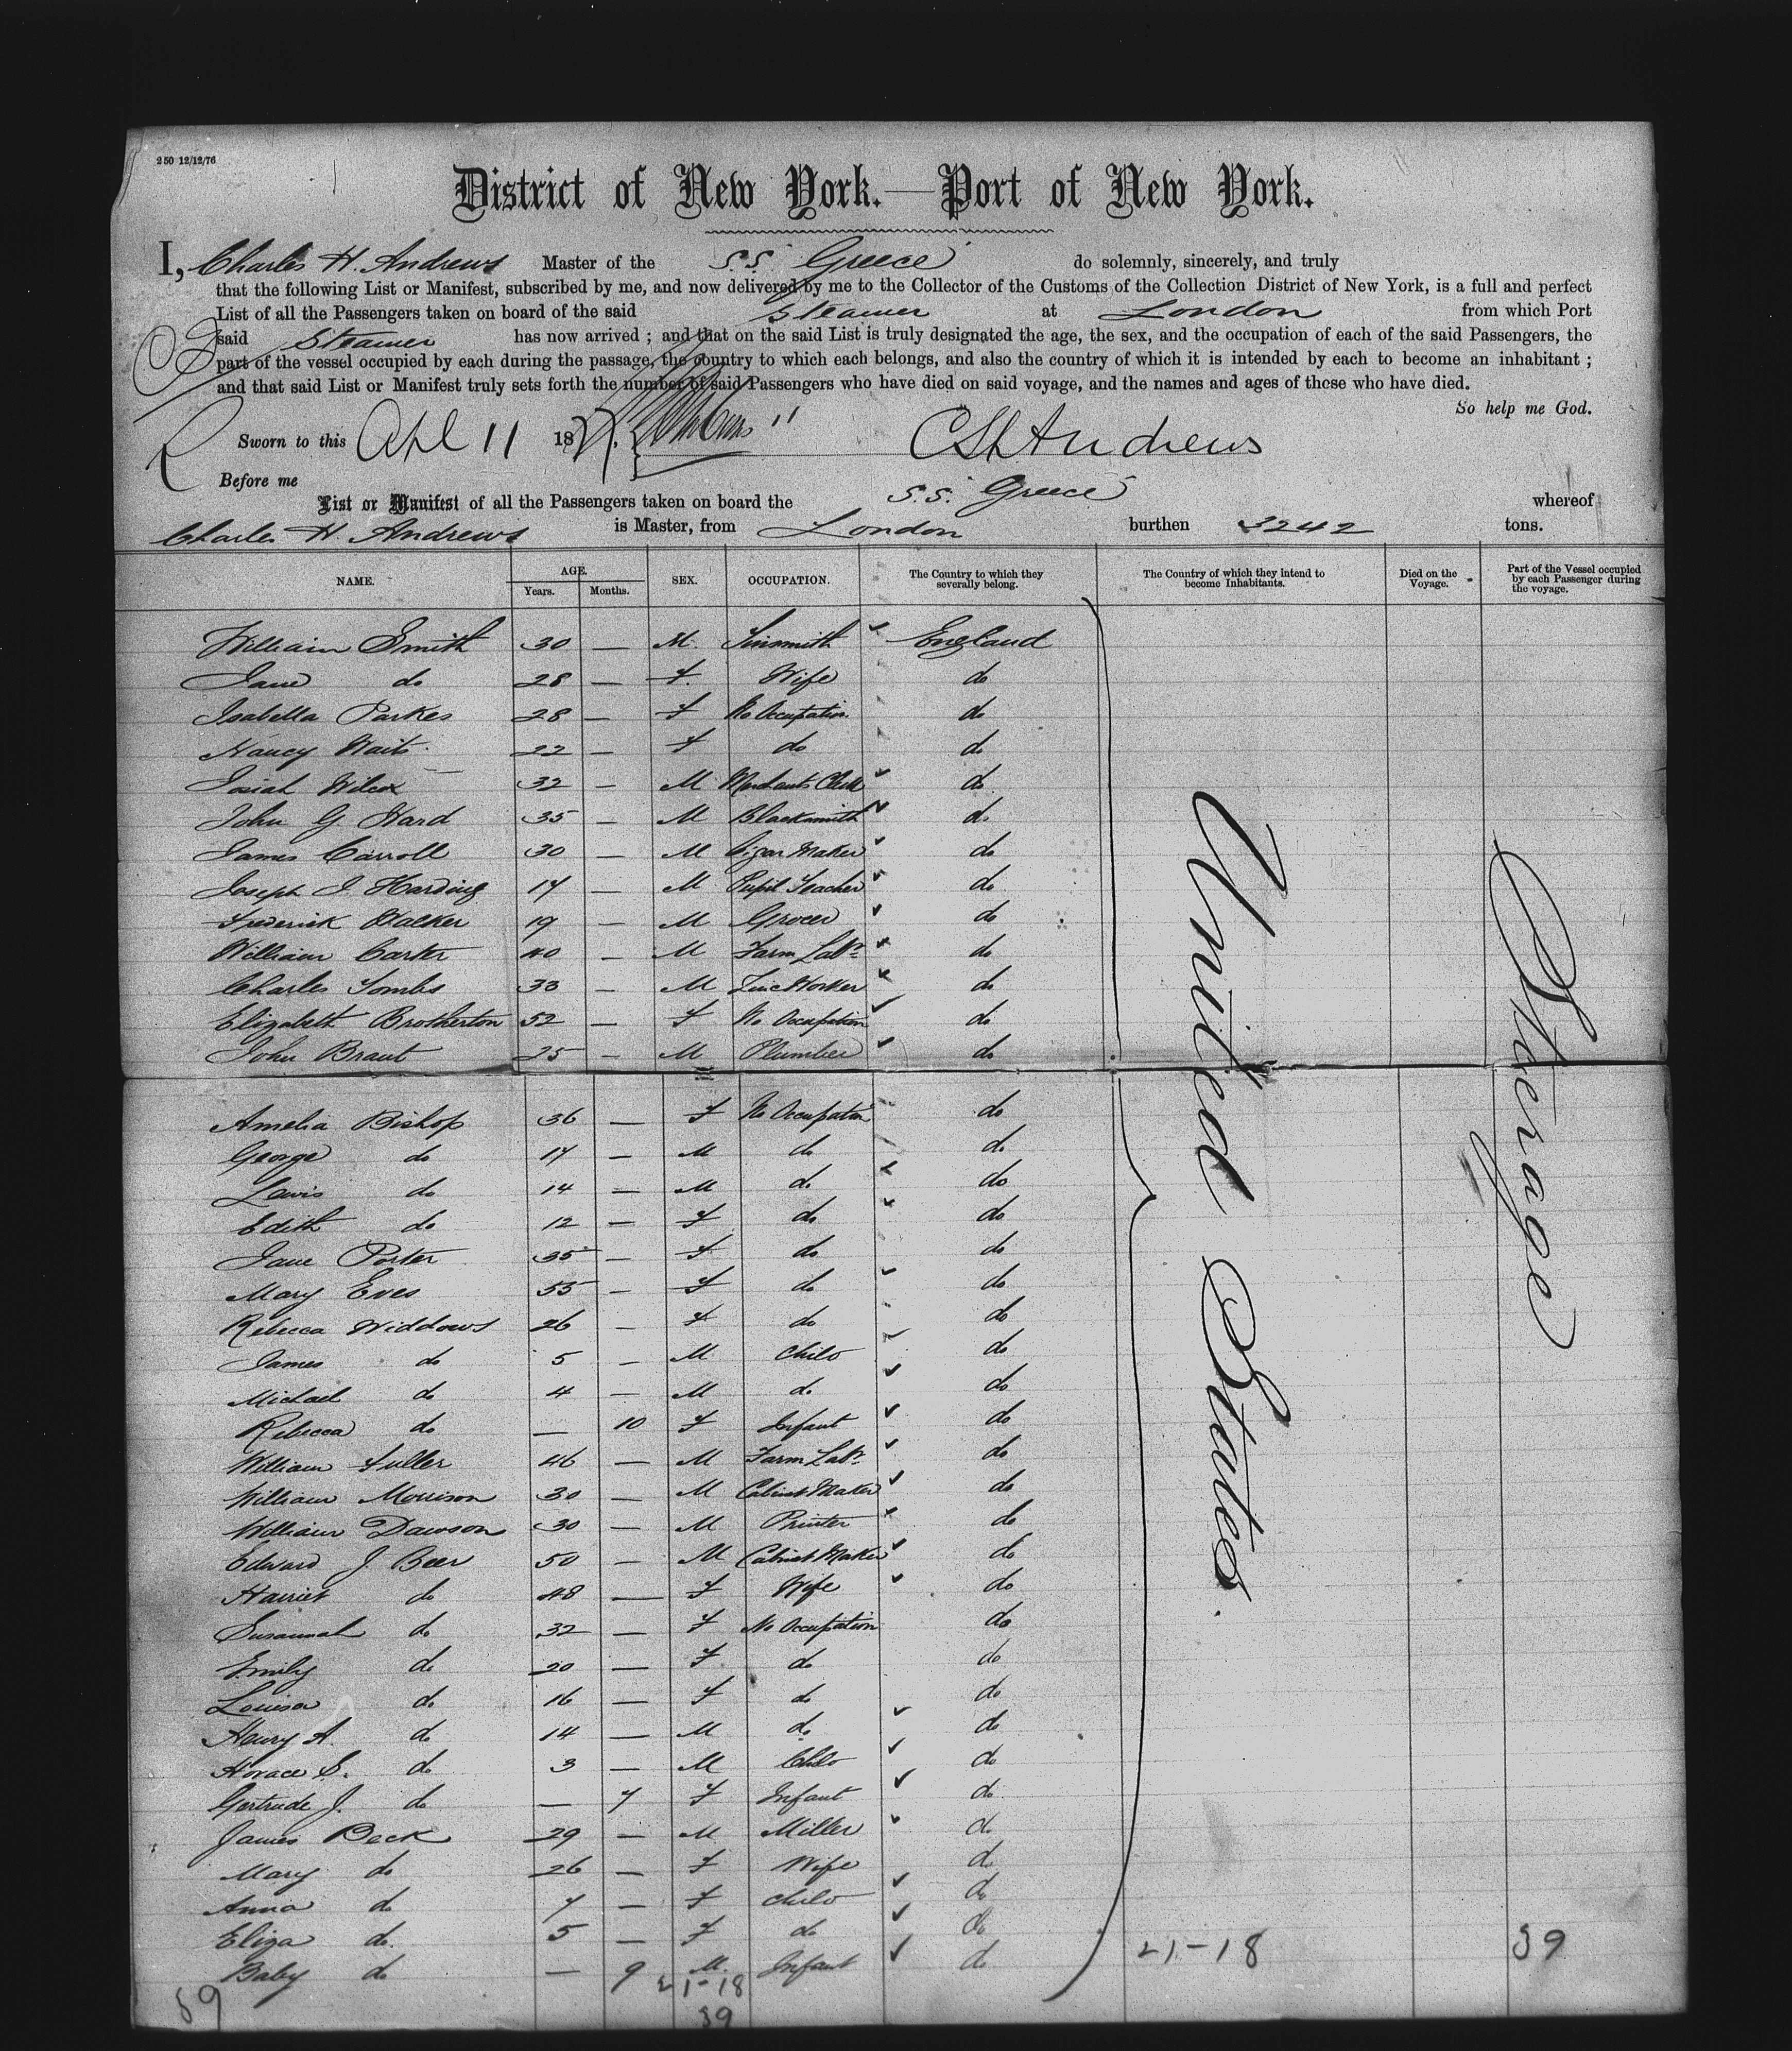 250 12/12/76
District of New York.—Port of New York.
I, Charles H. Andrews Master of the S.S. Greece do solemnly, sincerely, and truly
that the following List or Manifest, subscribed by me, and now delivered by me to the Collector of the Customs of the Collection District of New York, is a full and perfect
List of all the Passengers taken on board of the said Steamer at London from which Port
said Steamer has now arrived ; and that on the said List is truly designated the age, the sex, and the occupation of each of the said Passengers, the
part of the vessel occupied by each during the passage, the country to which each belongs, and also the country of which it is intended by each to become an inhabitant ;
and that said List or Manifest truly sets forth the number of said Passengers who have died on said voyage, and the names and ages of those who have died.
So help me God.
Sworn to this Apl 11 1877, C H Andrews
Before me
List or Manifest of all the Passengers taken on board the S.S. Greece whereof
Charles H. Andrews is Master, from London burthen 3242 tons.
NAME. AGE. Years. Months. SEX. OCCUPATION. The Country to which they severally belong. The Country of which they intend to become Inhabitants. Died on the Voyage. Part of the Vessel occupied by each Passenger during the voyage.
William Smith 30 — M. Tinsmith England
Jane do 28 — F. Wife do
Isabella Parkes 28 — F No Occupation do
Nancy Waits 22 — F do do
Josiah Wilcox 32 — M Merchants Clerk do
John G. Hard 35 — M Blacksmith do
James Carroll 30 — M Cigar Maker do
Joseph J. Harding 17 — M Pupil Teacher do
Frederick Walker 19 — M Grocer do
William Carter 40 — M Farm Labr do
Charles Tombs 33 — M Zinc Worker do
Elizabeth Brotherton 52 — F No Occupation do
John Braut 25 — M Plumber do
Amelia Bishop 36 — F No Occupation do
George do 17 — M do do
Lewis do 14 — M do do
Edith do 12 — F do do
Jane Porter 35 — F do do
Mary Eves 55 — F do do
Rebecca Widdows 26 — F do do
James do 5 — M Child do
Michael do 4 — M do do
Rebecca do — 10 F Infant do
William Fuller 46 — M Farm Labr do
William Morrison 30 — M Cabinet Maker do
William Dawson 30 — M Printer do
Edward J. Beer 50 — M Cabinet Maker do
Harriet do 48 — F Wife do
Susannah do 32 — F No Occupation do
Emily do 20 — F do do
Louisa do 16 — F do do
Henry A. do 14 — M do do
Horace S. do 3 — M Child do
Gertrude J. do — 7 F Infant do
James Beck 29 — M Miller do
Mary do 26 — F Wife do
Anna do 7 — F Child do
Eliza do 5 — F do do
Baby do — 9 M. Infant do
United States.
Steerage
21-18 39
39 21-18
39